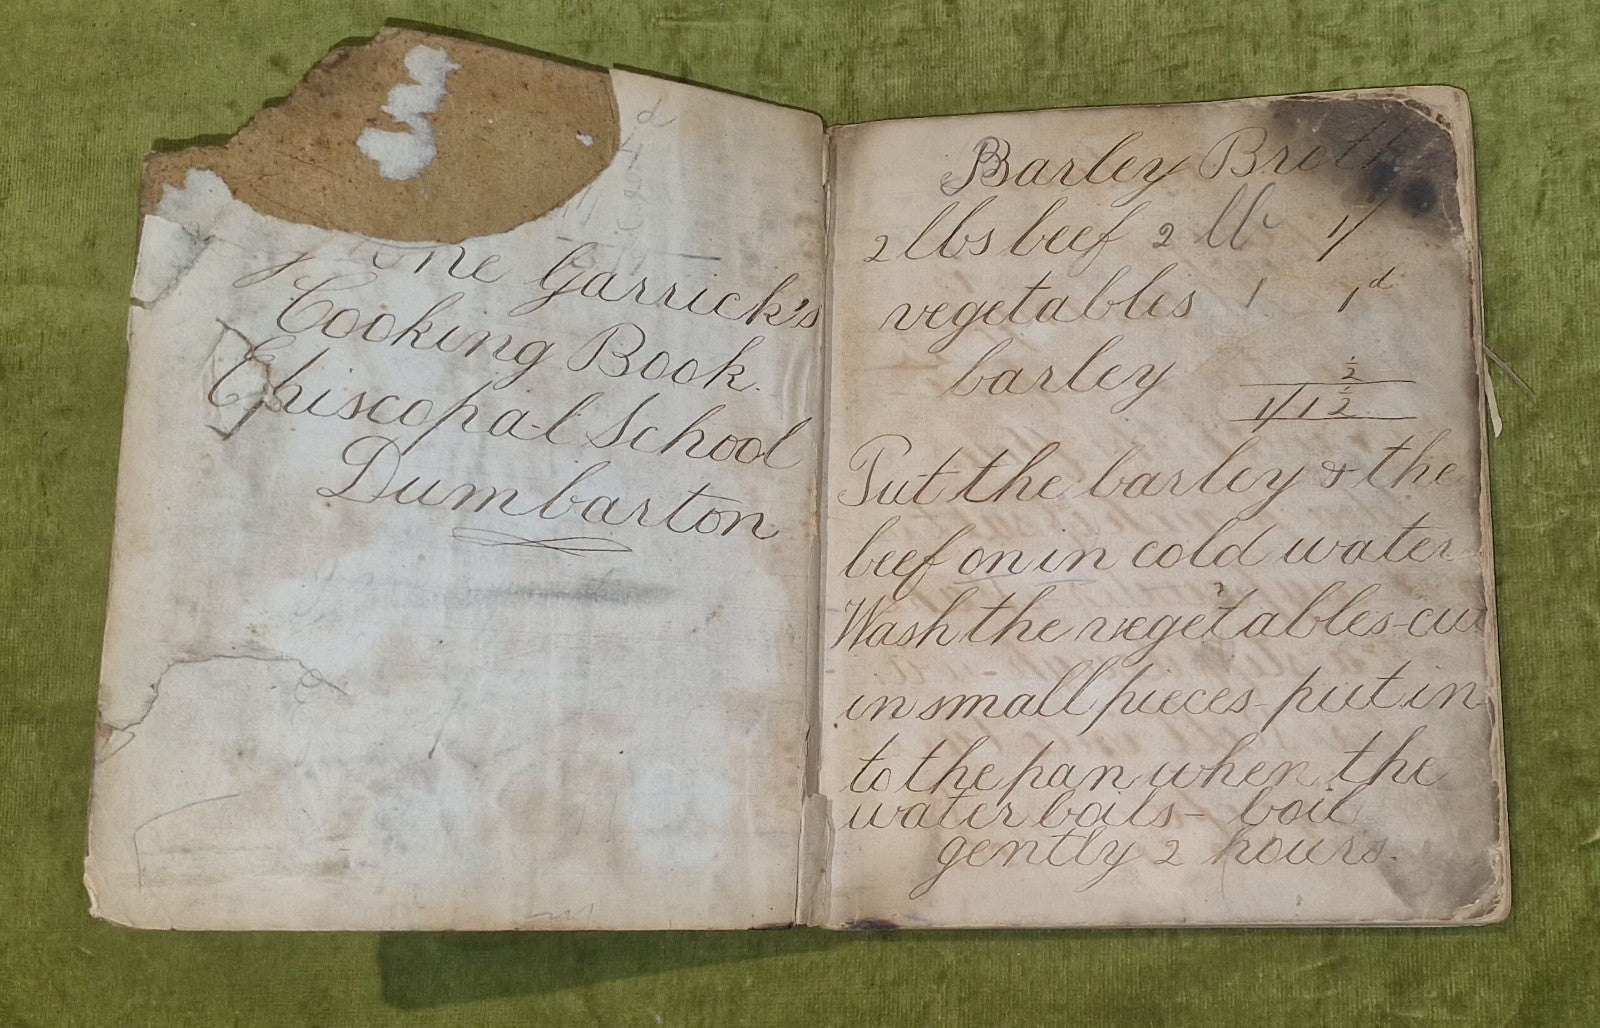 Garrick's
Cooking Book.
Episcopal School
Dumbarton
Barley Broth
2 lbs beef 2 lb 1/
vegetables 1 1d
barley ½
1/1½
Put the barley & the
beef on in cold water
Wash the vegetables-cut
in small pieces-put in
to the pan when the
water boils- boil
gently 2 hours.